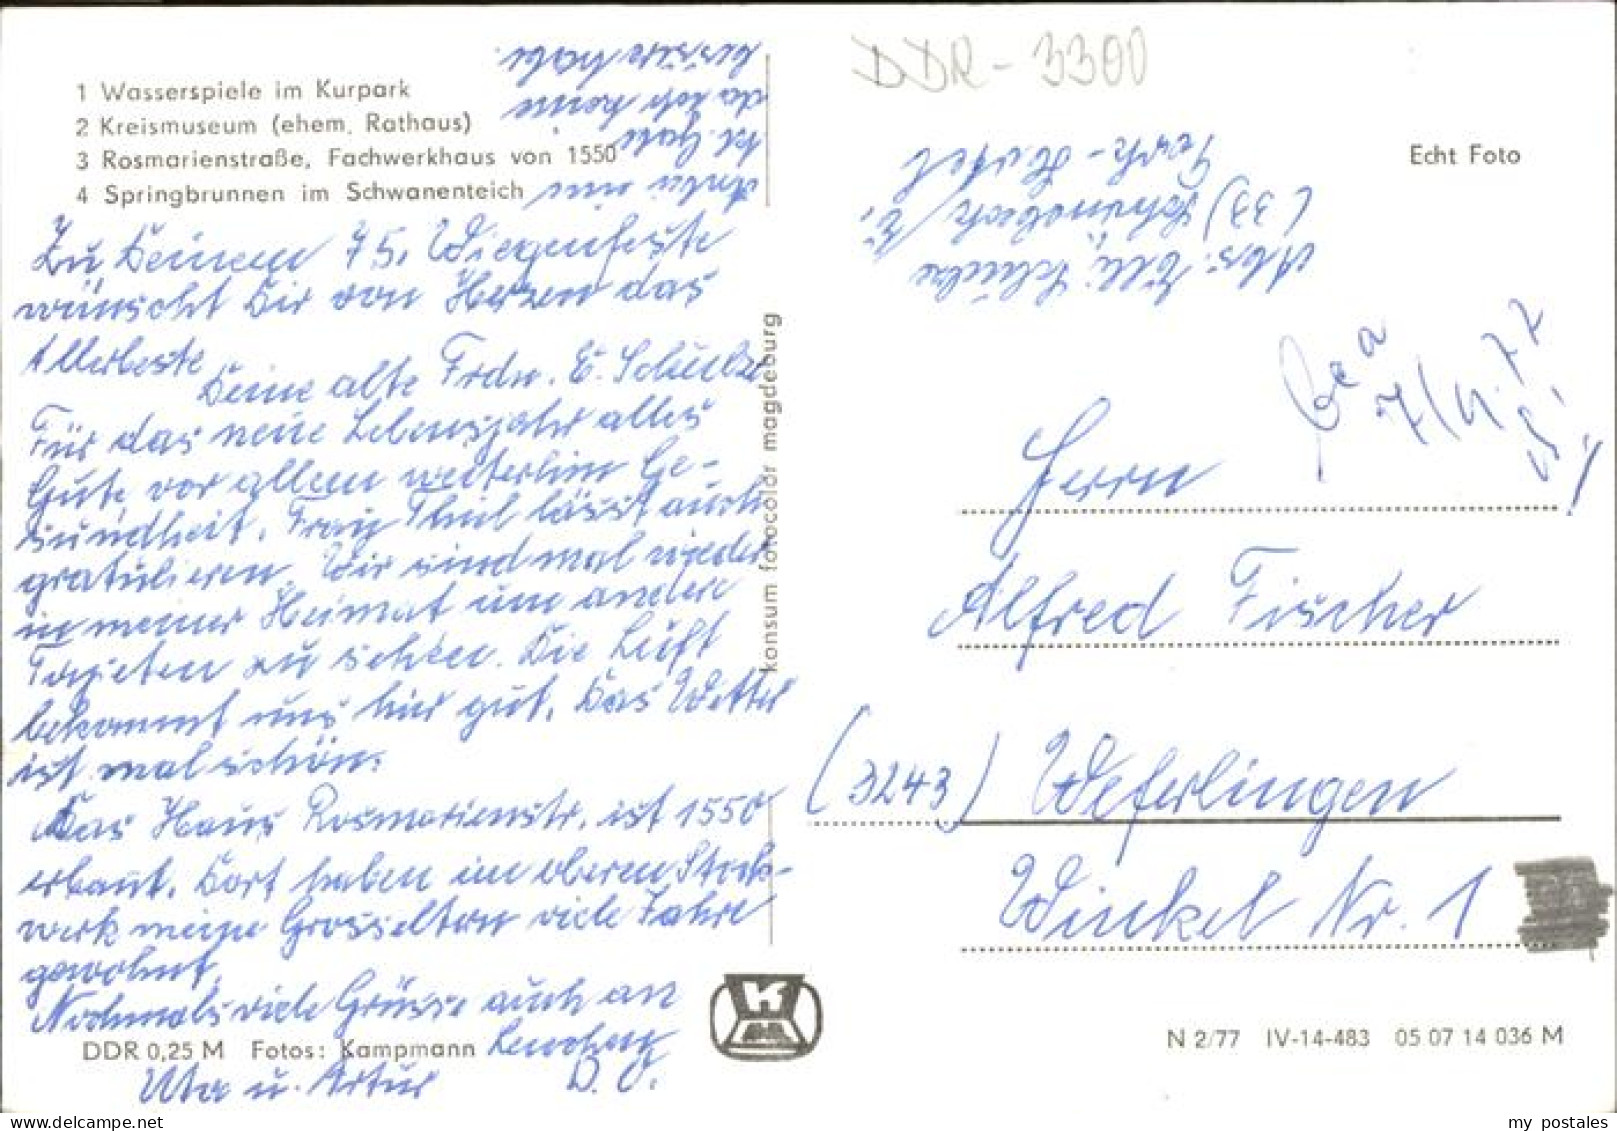 1 Wasserspiele im Kurpark
2 Kreismuseum (ehem. Rathaus)
3 Rosmarienstraße, Fachwerkhaus von 1550
4 Springbrunnen im Schwanenteich
Zu Deinem 75. Wiegenfeste
wünscht Dir von Herzen das
Allerbeste
Deine alte Frdn. E. Schulze
Für das neue Lebensjahr alles
Gute, vor allem weiterhin Ge-
sundheit. Frau Thiel lässt auch
gratulieren. Wir sind mal wieder
in meiner Heimat um andere
Tapeten zu sehen. Die Luft
bekommt uns hier gut. Das Wetter
ist mal schön.
Das Haus Rosmarienstr. ist 1550
erbaut. Dort haben im oberen Stock-
werk meine Grosseltern viele Jahre
gewohnt.
Nochmals viele Grüsse auch an
Lenchen
Uta u. Artur D. O.
DDR 0,25 M Fotos: Kampmann
da ich keine
bessere habe.
konsum fotocolor magdeburg
DDR - 3300
Echt Foto
Abs. Elli Schulze
(33) Schönebeck E.
Park-Hotel
7/9.77
Herrn
Alfred Fischer
(3243) Weferlingen
Winkel Nr. 1
K
N 2/77 IV-14-483 05 07 14 036 M
my postales